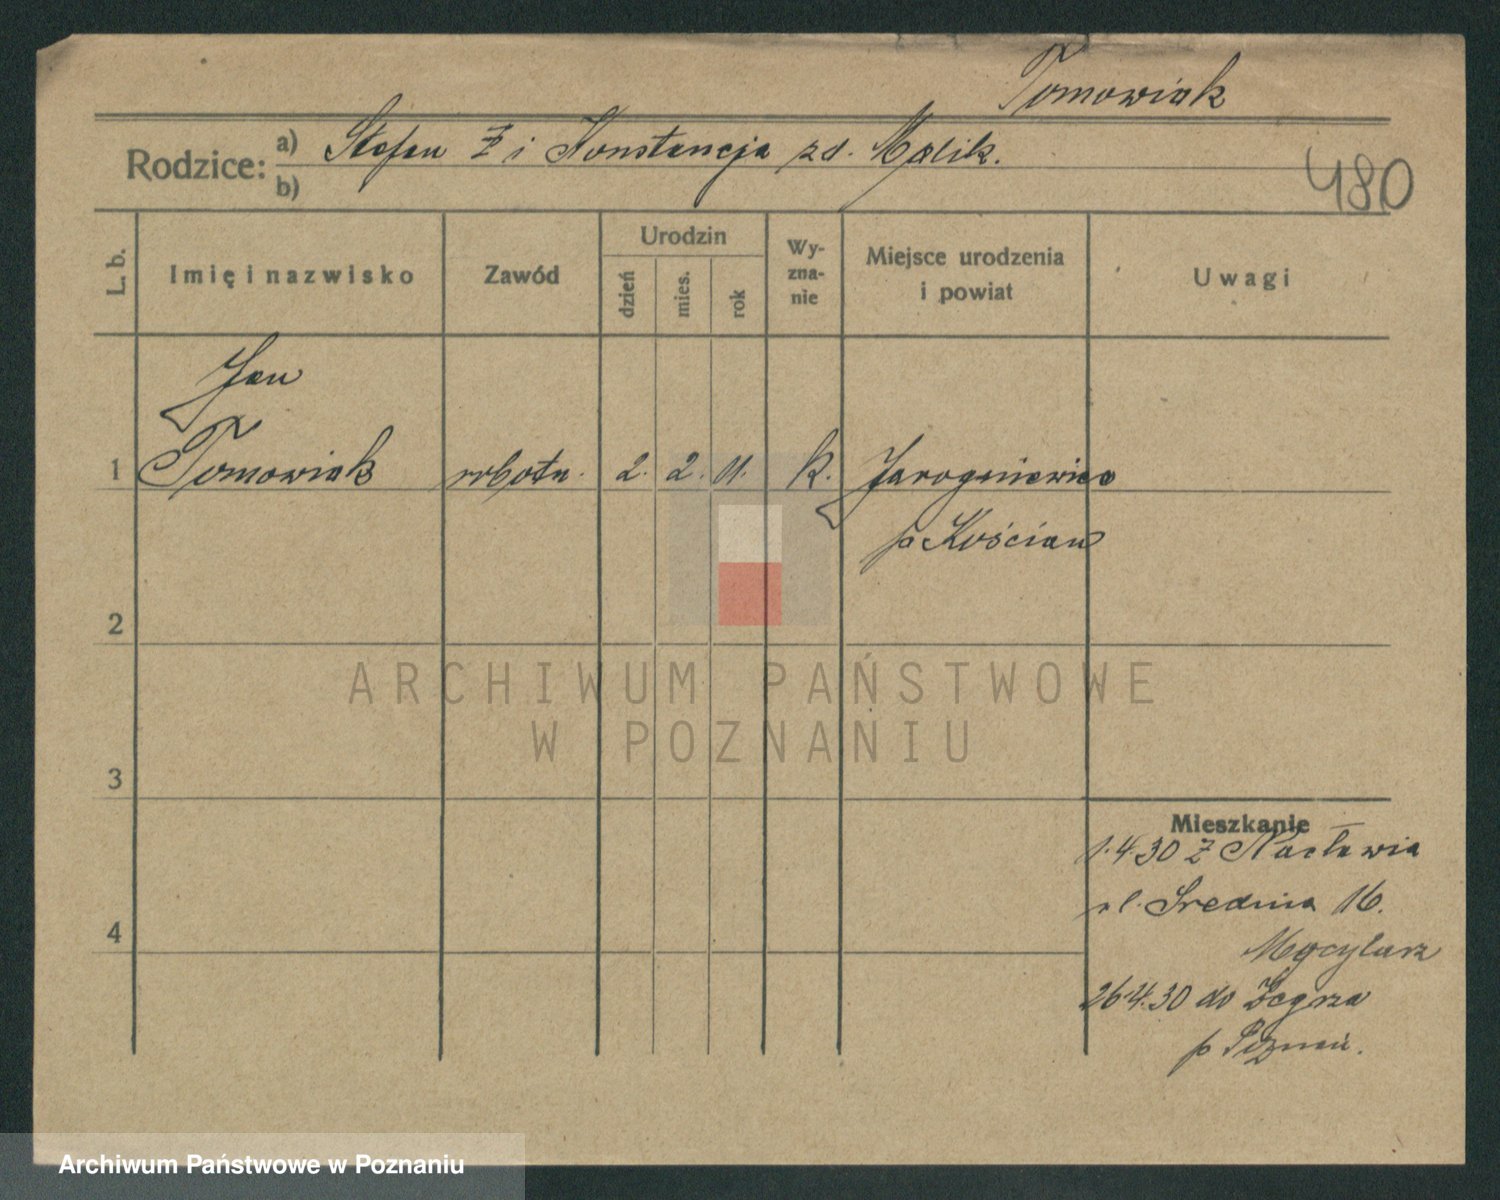 Tomowiak
Rodzice: a) Stefan i Konstancja zd. Malik.
b)
480
L. b.
Imię i nazwisko
Zawód
Urodzin
dzień
mies.
rok
Wy-
zna-
nie
Miejsce urodzenia
i powiat
Uwagi
Jan
1 Tomowiak robotn. 2. 2. 11. k. Jarogniewice
p Kościan
2
ARCHIWUM PAŃSTWOWE
W POZNANIU
3
Mieszkanie
1.4.30 z Nacławia
ul. Srednia 16.
4
26.4.30 do Zegrza
p Poznań.
Archiwum Państwowe w Poznaniu